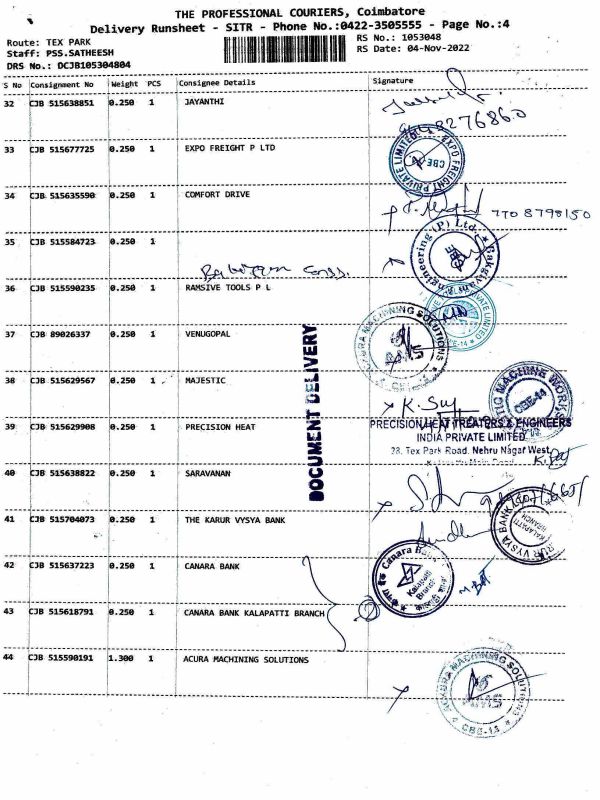 THE PROFESSIONAL COURIERS, Coimbatore
Delivery Runsheet - SITR - Phone No.:0422-3505555 - Page No.:4
Route: TEX PARK
RS No.: 1053048
Staff: PSS.SATHEESH
RS Date: 04-Nov-2022
DRS No.: DCJB105304804
S No Consignment No Weight PCS Consignee Details Signature
32 CJB 515638851 0.250 1 JAYANTHI
33 CJB 515677725 0.250 1 EXPO FREIGHT P LTD
EXPO FREIGHT PRIVATE LIMITED
CBE
34 CJB 515635590 0.250 1 COMFORT DRIVE
7708798150
35 CJB 515584723 0.250 1
Engineering (P) Ltd.
36 CJB 515590235 0.250 1 RAMSIVE TOOLS P L
PRIVATE LIMITED
37 CJB 89026337 0.250 1 VENUGOPAL
ACURA MACHINING SOLUTIONS
DOCUMENT DELIVERY
38 CJB 515629567 0.250 1 MAJESTIC
MACHINE WORKS
CBE-14
39 CJB 515629908 0.250 1 PRECISION HEAT
PRECISION HEAT TREATERS & ENGINEERS
INDIA PRIVATE LIMITED
28, Tex Park Road, Nehru Nagar West,
40 CJB 515638822 0.250 1 SARAVANAN
41 CJB 515704073 0.250 1 THE KARUR VYSYA BANK
KARUR VYSYA BANK
KALAPATTI
BRANCH
42 CJB 515637223 0.250 1 CANARA BANK
Canara Bank
Kalapatti
Branch
43 CJB 515618791 0.250 1 CANARA BANK KALAPATTI BRANCH
44 CJB 515590191 1.300 1 ACURA MACHINING SOLUTIONS
ACURA MACHINING SOLUTIONS
AMS